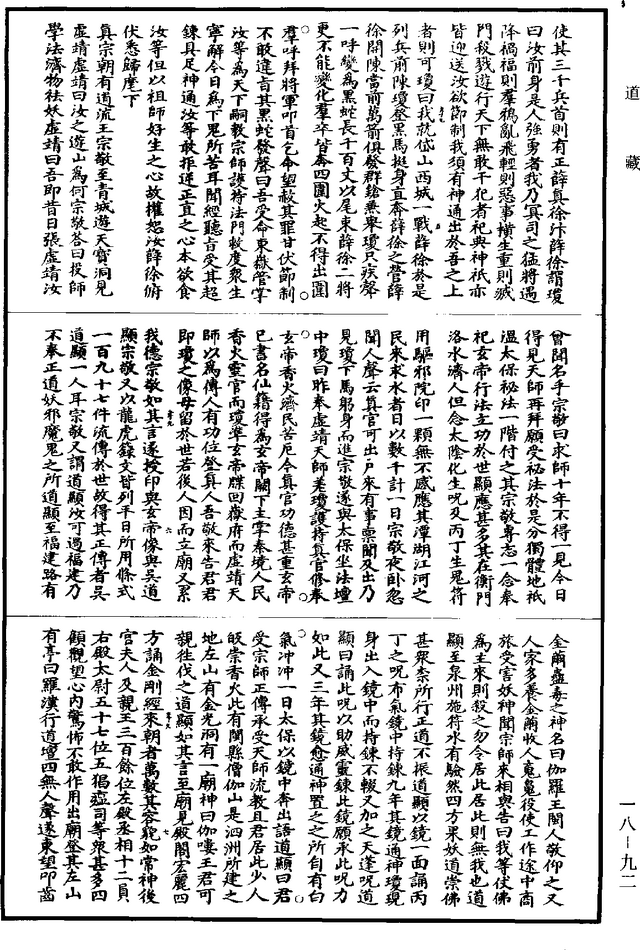 道藏
使其三千兵首則有正薛真徐汴薛徐謂瓊
曰汝前身是人強勇者我乃真司之猛將遇
降禍福則羣鴉亂飛輕則惡事橫生重則滅
門殺戮遊行天下無敢干犯者祀與神祇亦
皆迎送汝欲節制我須有神通出於吾之上
者則可瓊曰我就岱山西城一戰薛徐於是
列兵前陳瓊登黑馬挺身直奔薛徐之營薛
徐開陳當前萬箭俱發群鎗兼舉瓊只疾聲
一呼變為黑蛇長千百丈以尾束薛徐二將
更不能變化羣卒皆奔四圍火起不得出圍
羣呼拜將軍叩首乞命望赦其罪甘伏節制
不敢違旨其黑蛇發聲曰吾受命東嶽管掌
汝等為天下嗣教宗師護持法門救度衆生
寧解今日為下鬼所苦耳聞經聽旨受其超
鍊具足神通汝等敢拒逆正直之心本欲食
汝等但以祖師好生之心故權恕汝薛徐俯
伏悉歸麾下
真宗朝有道流王宗敬至青城遊天寶洞見
虛靖虛靖曰汝之遊山為何宗敬答曰投師
學法濟物祛妖虛靖曰吾即昔日張虛靖汝
曾聞名乎宗敬曰求師十年不得一見今日
得見天師再拜願受祕法於是分獨體地祇
溫太保祕法一階付之其宗敬專志一念奉
祀玄帝行法主功於世顯應甚多其在衡門
洛水濟人但念太陰化生呪及丙丁生鬼符
用驅邪院印一顆無不感應其潭湖江河之
民來求水者日以數千計一日宗敬夜卧忽
聞人聲云真官可出戶來有事稟聞及出乃
見瓊下馬躬身而進宗敬遂與太保坐法壇
中瓊曰昨奉虛靖天師差瓊護持真官修奉
玄帝香火濟民苦厄今真官功德甚重玄帝
已書名仙籍得為玄帝闕下主掌奉境人民
香火靈官而瓊準玄帝牒回嶽府而虛靖天
師以為傳人有功位登真人吾敬來告君君
即瓊之像毋留於世若後人因而立廟又累
我德宗敬如其言遂授印與玄帝像與吳道
顯宗敬又以龍虎錄文皆列平日所用條式
一百九十七件流傳於世故得其正傳者吳
道顯一人耳宗敬又謂道顯汝可遇福建乃
不奉正道妖邪魔鬼之所道顯至福建路有
金蠒蠱毒之神名曰伽羅王閩人敬仰之又
人家多養金蠒收人寃鬼役使工作途中商
旅受害妖神聞宗師來相與告曰我等伏佛
為主來則殺之勿令居此居此則無我也道
顯至泉州施符水有驗然四方果妖道崇佛
甚衆柰所行正道不振道顯以鏡一面誦丙
丁之呪布氣鏡中持鍊九年其鏡通神瓊現
身出入鏡中而持鍊不輟又加之天蓬呪道
顯曰誦此呪以助威靈鍊此鏡願承此呪力
如此又三年其鏡愈通神置之之所自有白
氣冲冲一日太保以鏡中奔出語道顯曰君
受宗師正傳承受天師流教且君居此少人
皈崇香火此有閩縣僧伽山是泗洲所建之
地左山有金光洞有一廟神曰伽嘍王君可
親往伐之道顯如其言至廟見殿閣宏麗四
方誦金剛經來朝者萬數其容貌如常神後
官夫人及親王三百餘位左殿丞相十二員
右殿太尉五十七位五猖瘟司等衆甚多四
顧觀望心内驚怖不敢作用出廟登其左山
有亭曰羅漢行道壇四無人聲遂東望叩齒
一八-九二